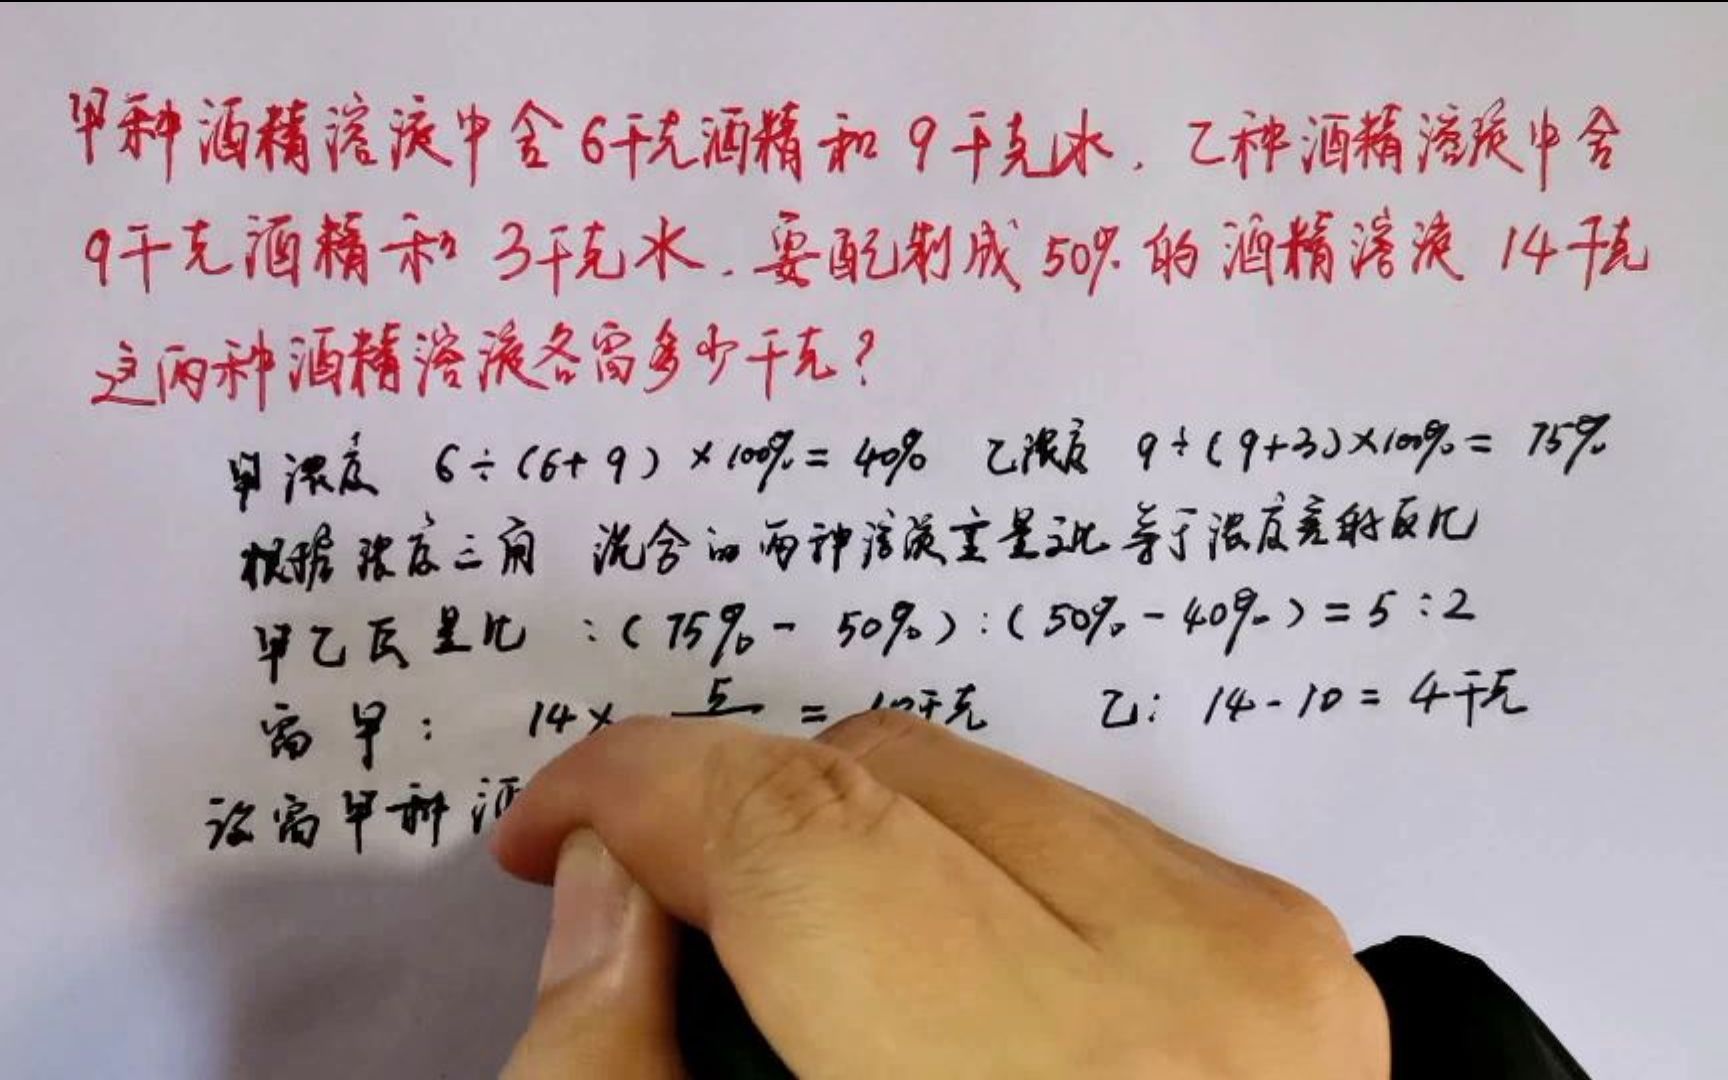 甲种酒精溶液中含6千克酒精和9千克水.乙种酒精溶液中含
9千克酒精和3千克水.要配制成50%的酒精溶液14千克
这两种酒精溶液各需多少千克?
甲浓度 6÷(6+9)×100%=40% 乙浓度 9÷(9+3)×100%=75%
根据浓度三角 混合的两种溶液重量之比等于浓度差的反比
甲乙质量比:(75%-50%):(50%-40%)=5:2
需甲: 14× 5 = 10千克 乙: 14-10=4千克
设需甲种酒